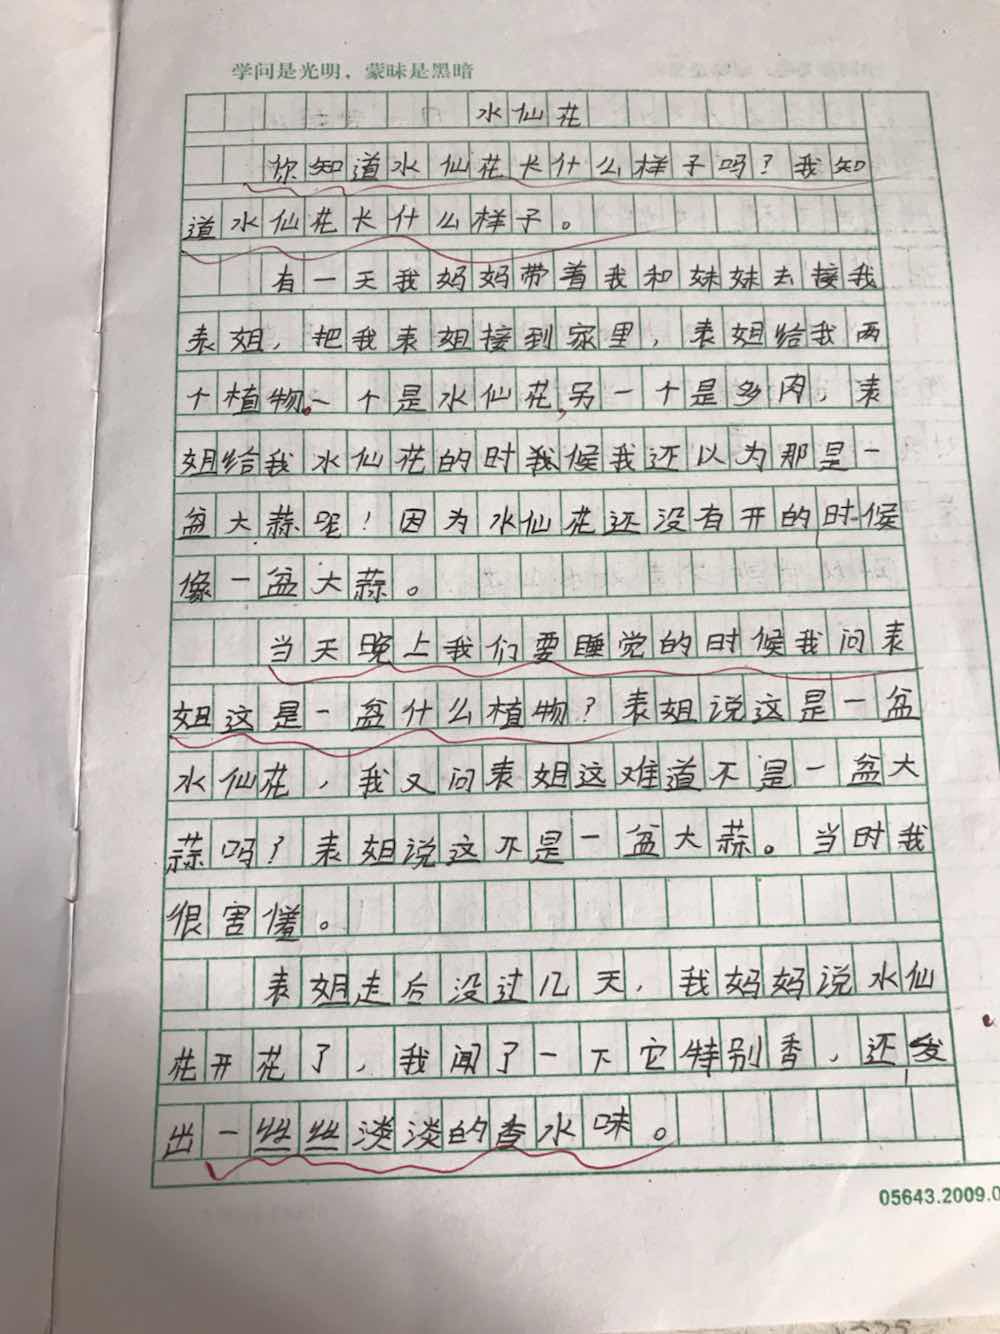 学问是光明，蒙昧是黑暗
水仙花
你知道水仙花长什么样子吗？我知
道水仙花长什么样子。
有一天我妈妈带着我和妹妹去接我
表姐，把我表姐接到家里，表姐给我两
个植物。一个是水仙花，另一个是多肉，表
姐给我水仙花的时候我还以为那是一
盆大蒜呢！因为水仙花还没有开的时候
像一盆大蒜。
当天晚上我们要睡觉的时候我问表
姐这是一盆什么植物？表姐说这是一盆
水仙花，我又问表姐这难道不是一盆大
蒜吗？表姐说这不是一盆大蒜。当时我
很害懂。
表姐走后没过几天，我妈妈说水仙
花开花了，我闻了一下它特别香，还发
出一丝丝淡淡的香水味。
05643.2009.0